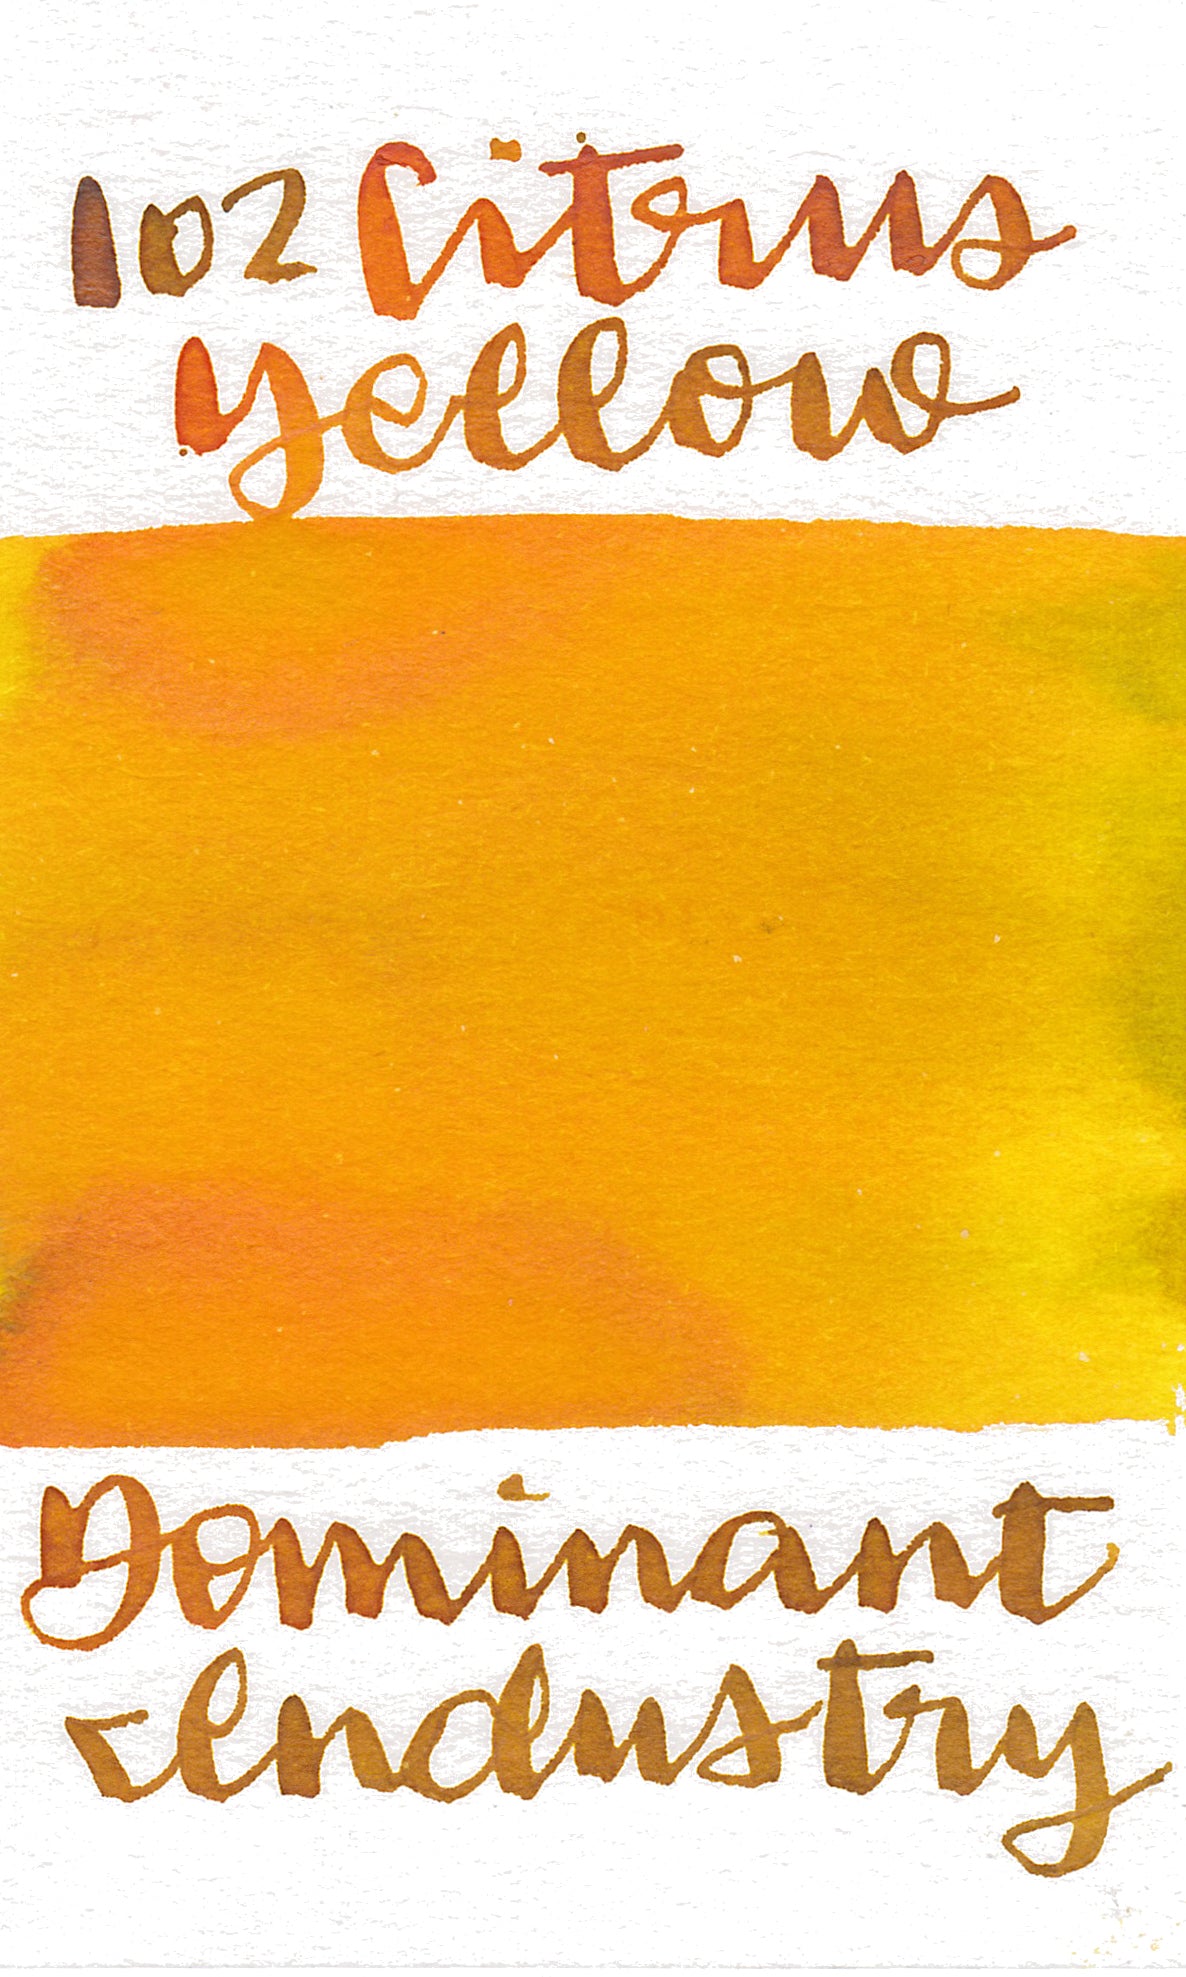 102 Citrus
Yellow
Dominant
Industry